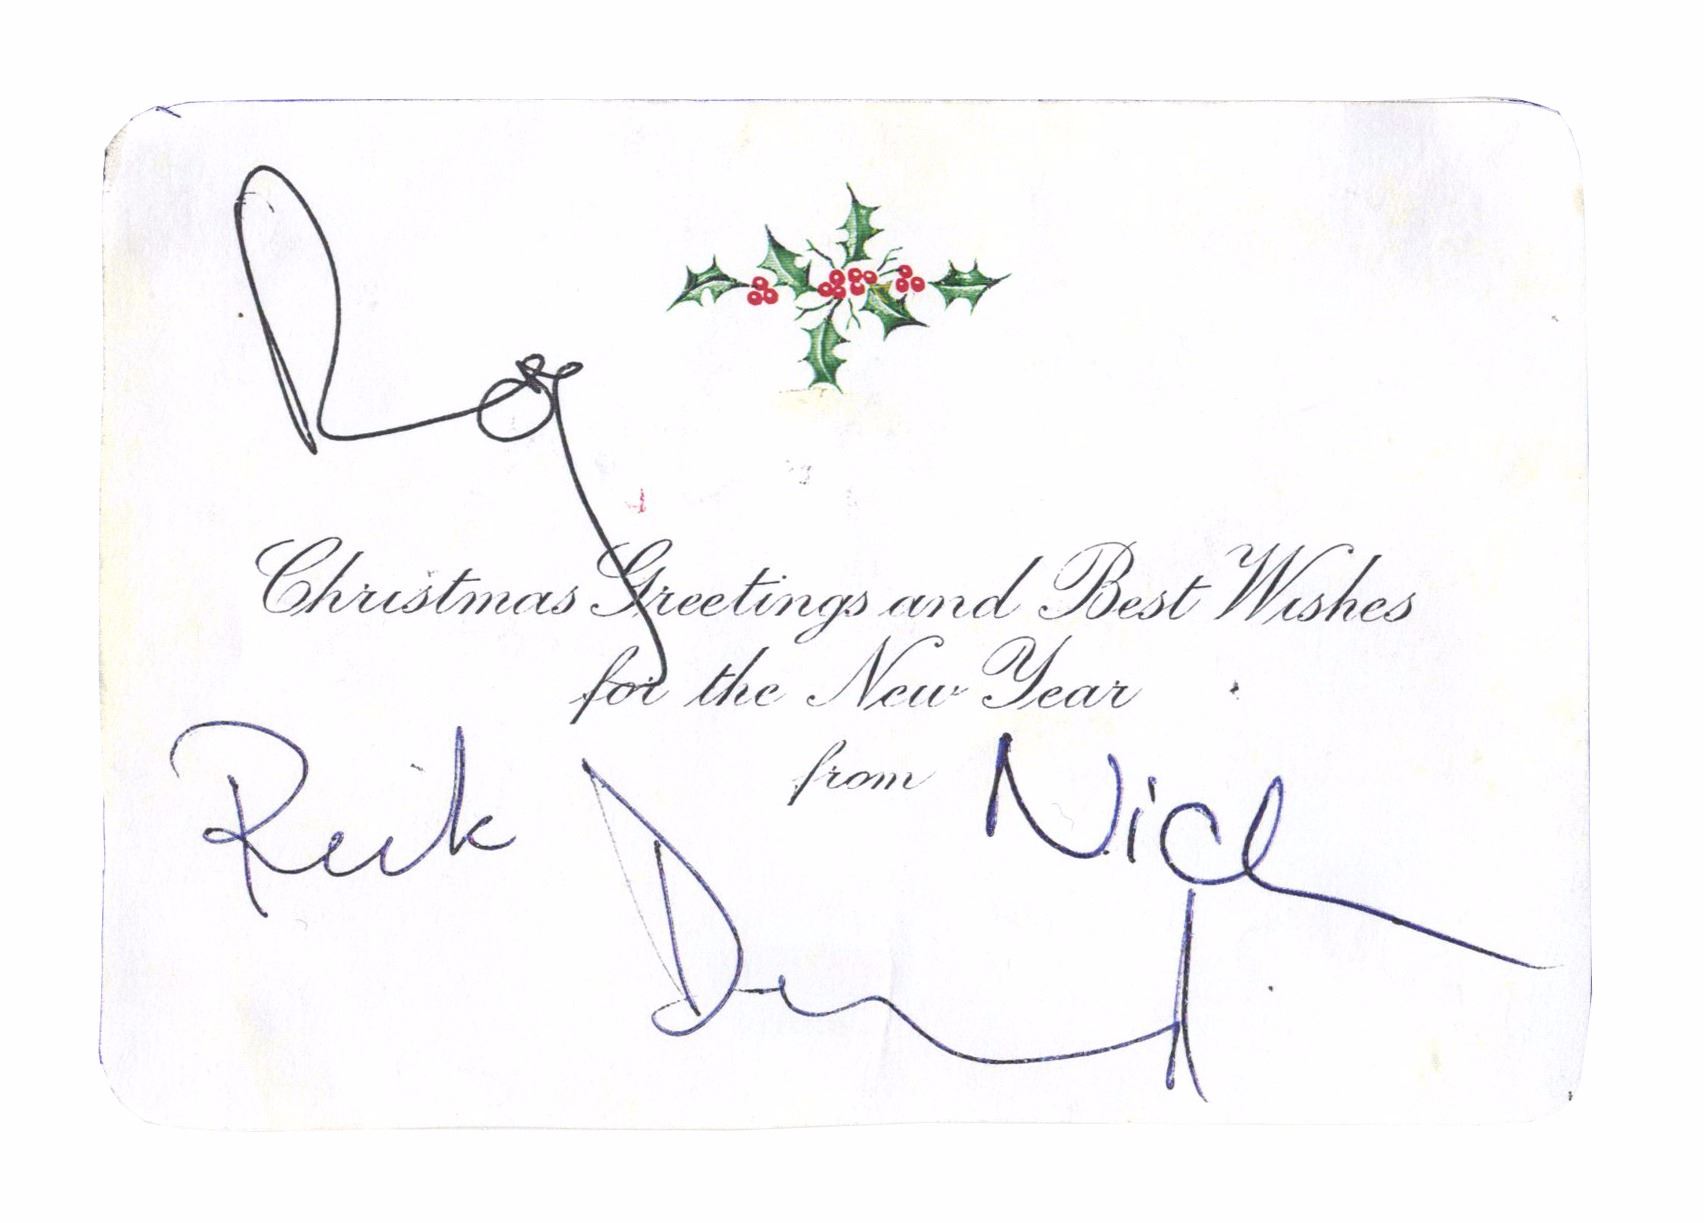 Rog
Christmas Greetings and Best Wishes
for the New Year
from
Rick
Nick